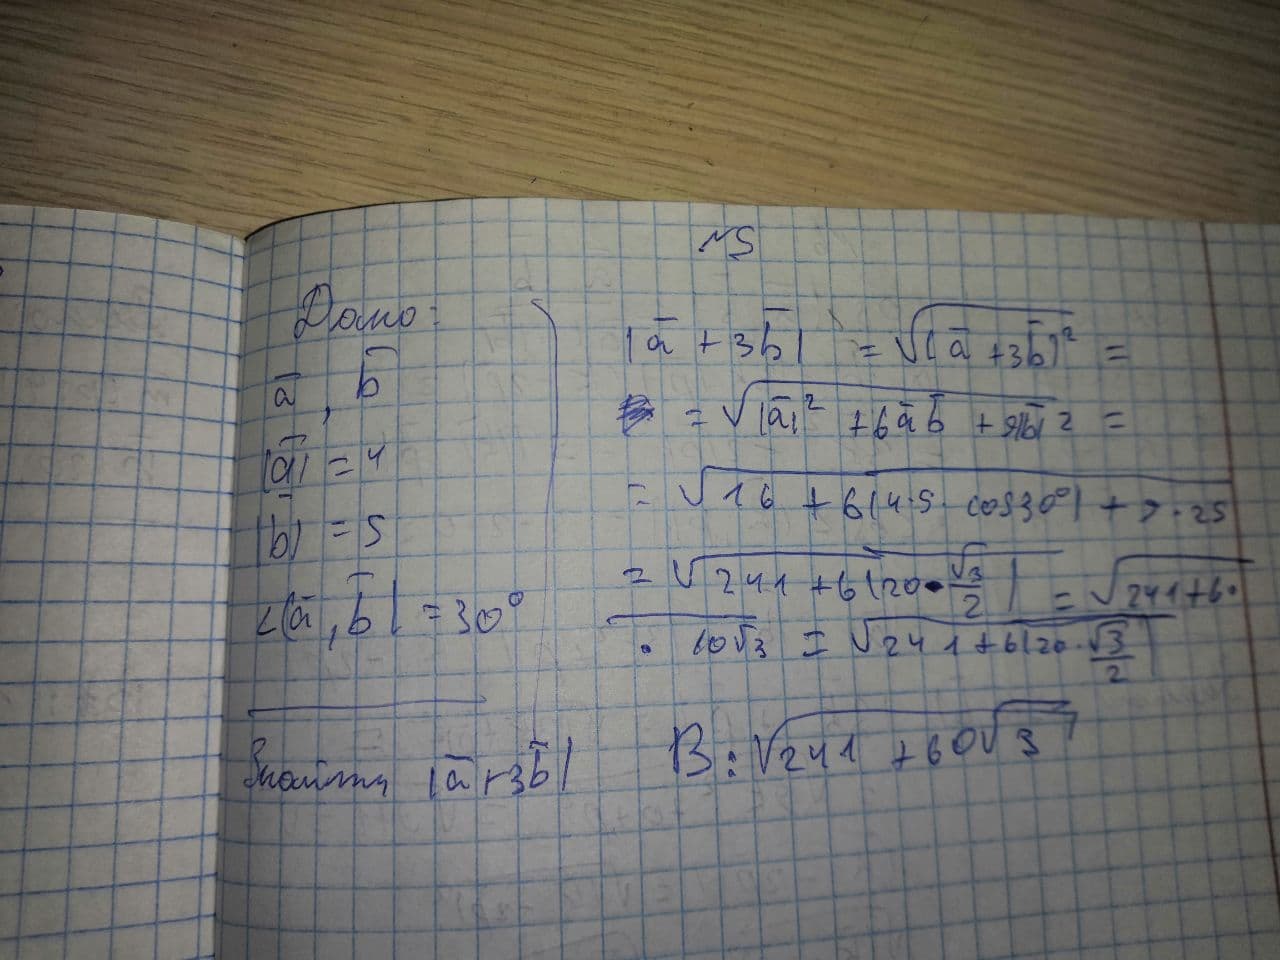 №5
Дано:
a̅, b̅
|a̅| = 4
|b̅| = 5
<(a̅, b̅) = 30°
Знайти |a̅+3b̅|
|a̅ + 3b̅| = √(a̅ + 3b̅)² =
= √|a̅|² + 6a̅b̅ + 9|b̅|² =
= √16 + 6(4·5·cos30°) + 9·25
= √241 + 6(20·√3/2) = √241+6·
· 10√3 = √241+6(20·√3/2)
В: √241 + 60√3